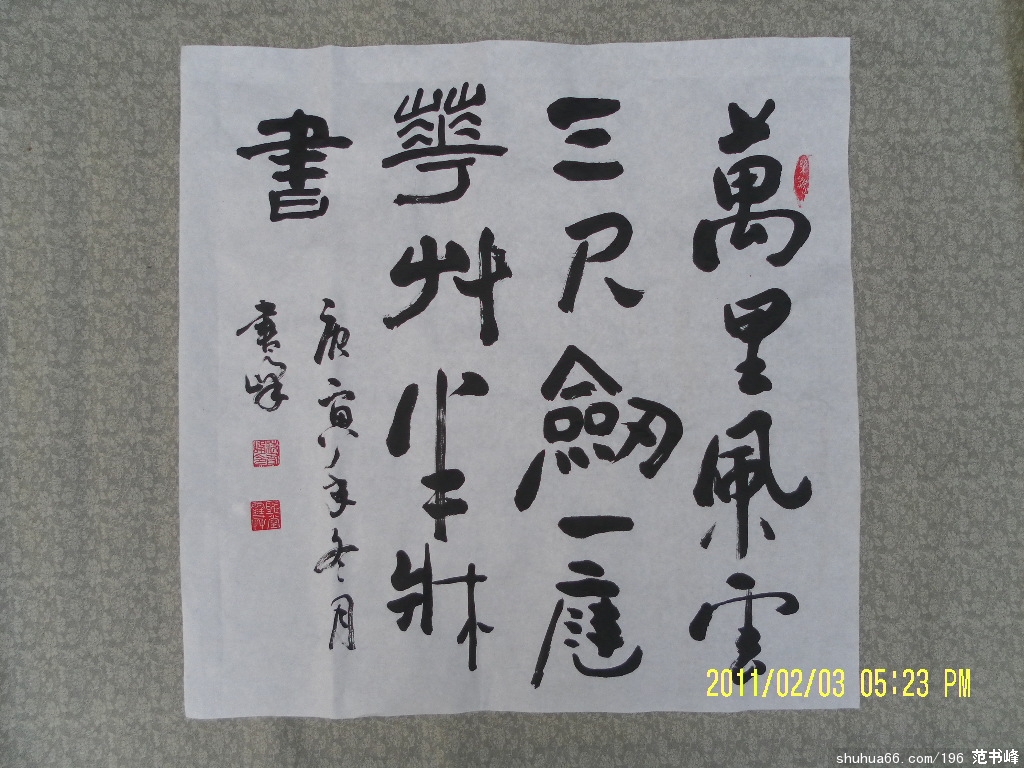 萬里風雲
三尺劒一庭
華艸半牀
書
庚寅年冬月
書峰
2011/02/03 05:23 PM
shuhua66.com/196 范书峰